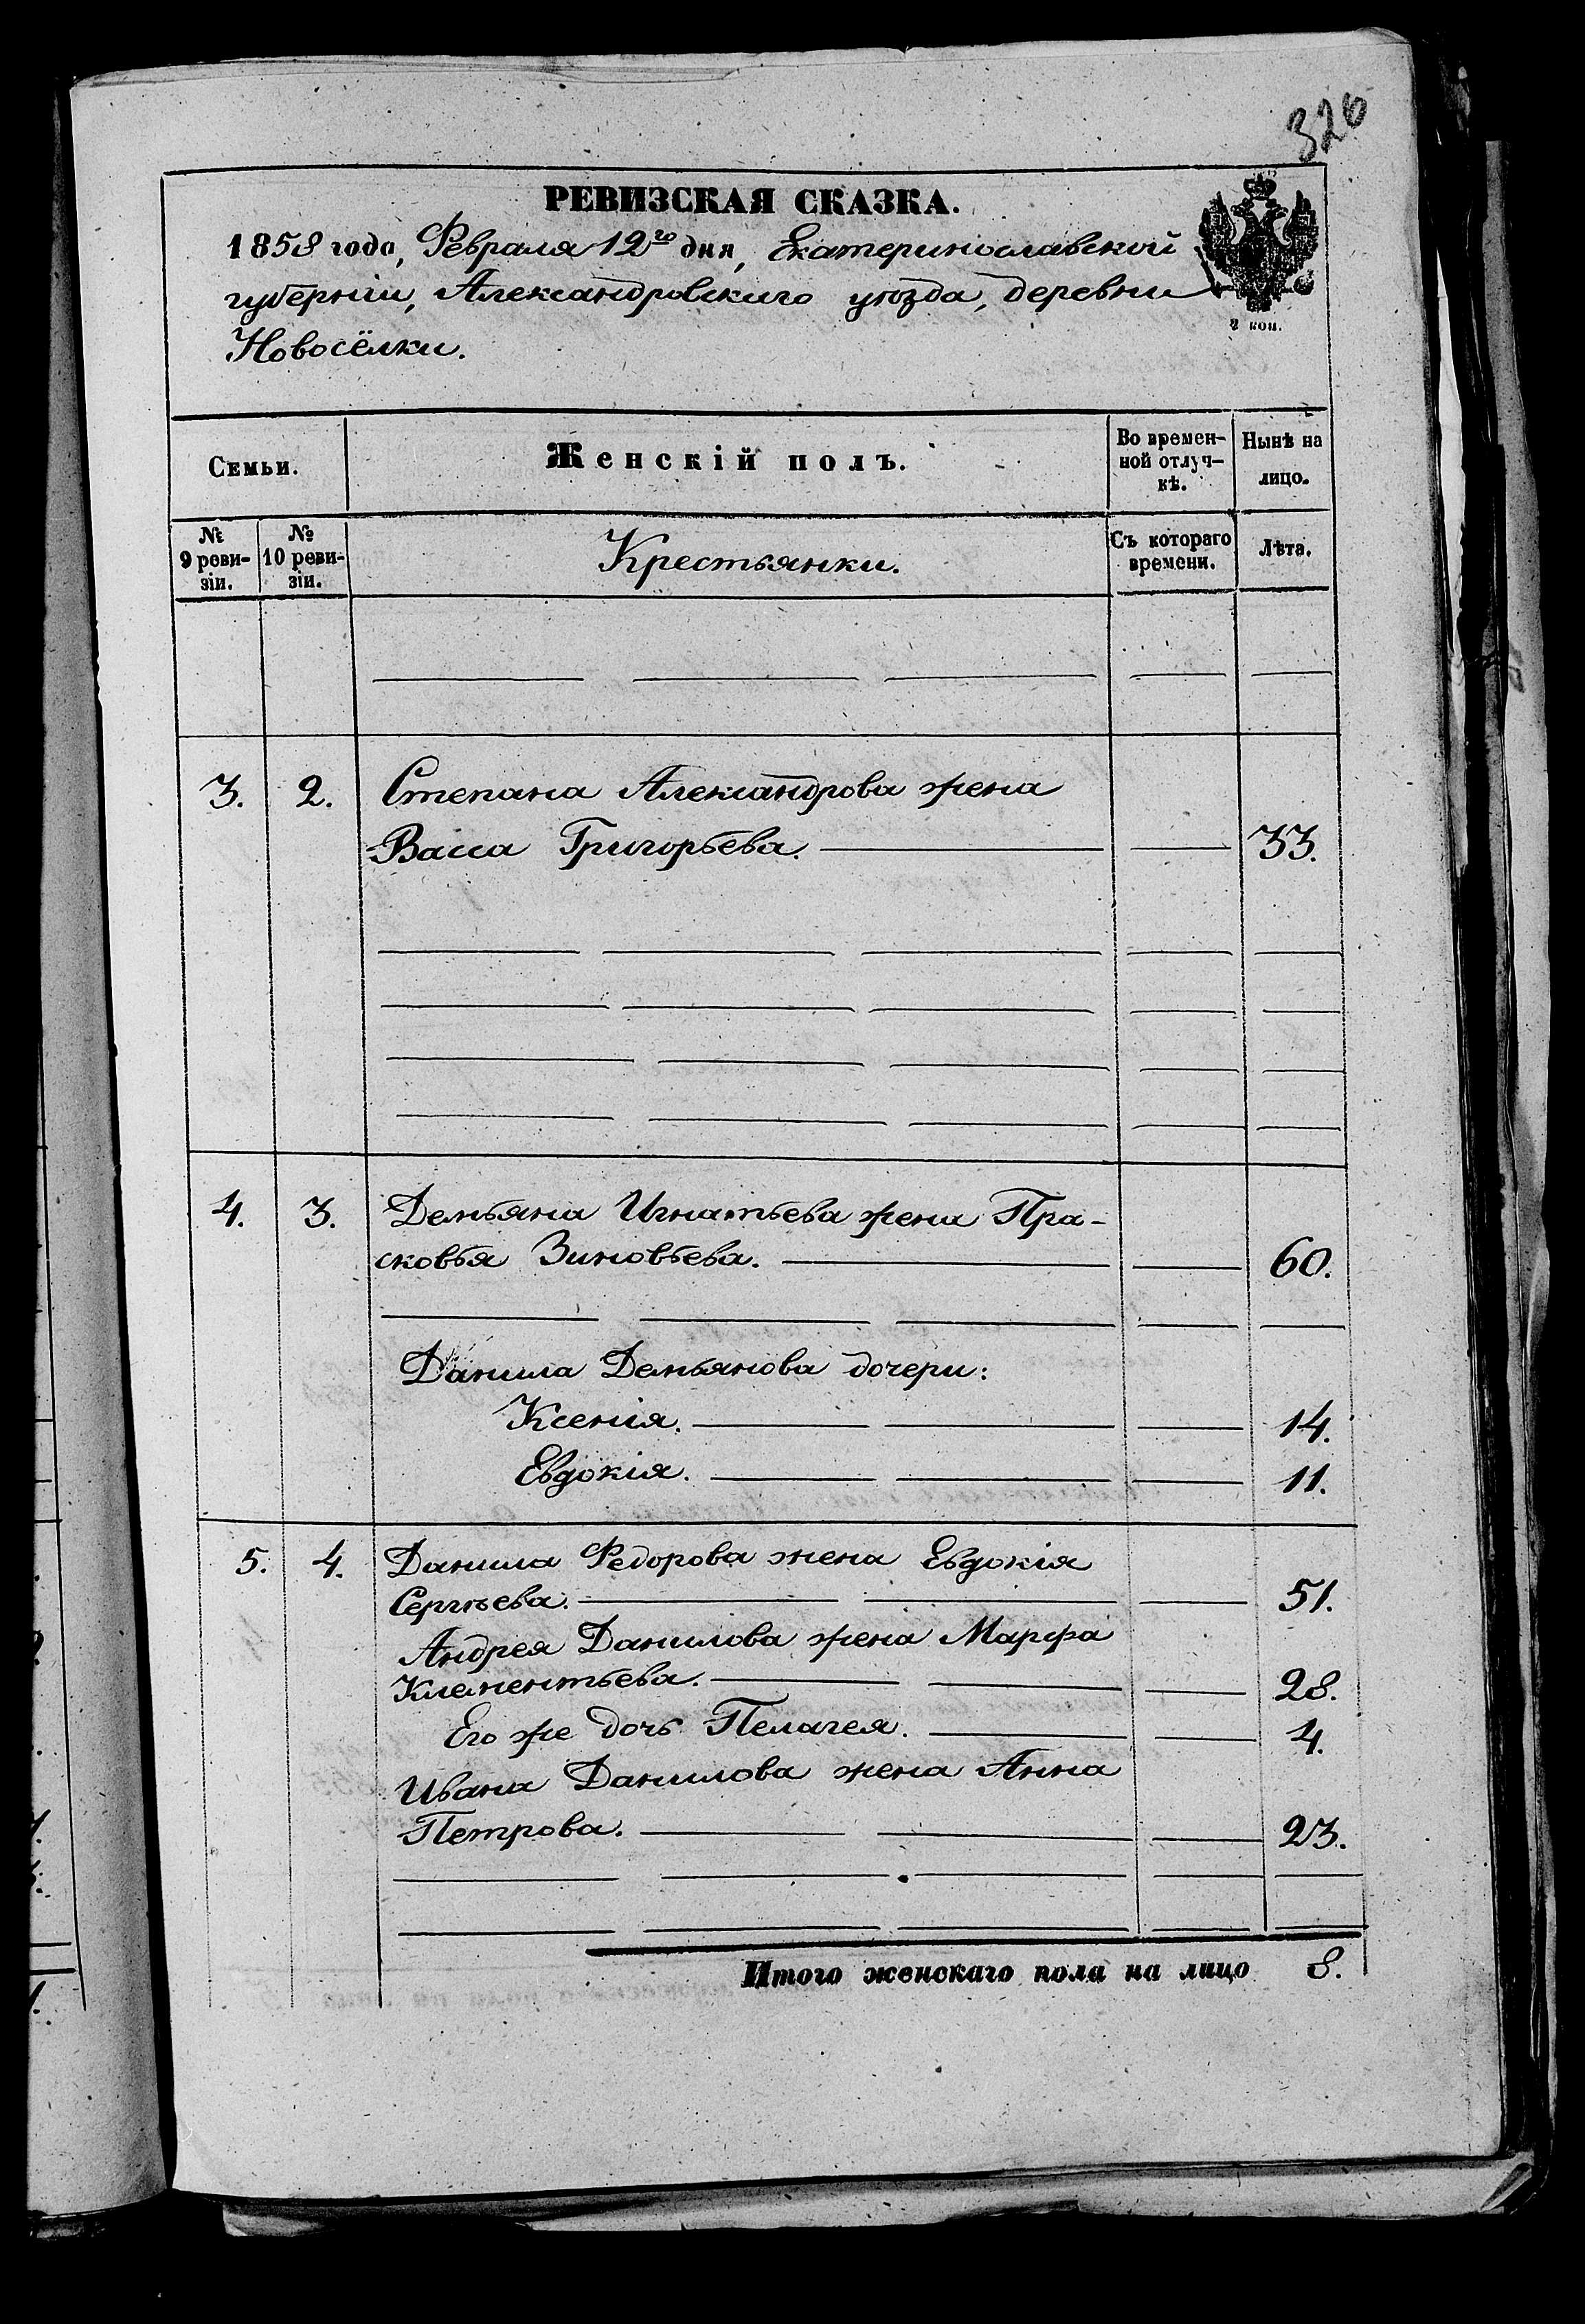 326
РЕВИЗСКАЯ СКАЗКА.
1858 года, Февраля 12го дня, Екатеринославской
губерніи, Александровскаго уѣзда, деревни
Новосёлки.
2 коп.
Семьи.
Женскій полъ.
Во времен-
ной отлуч-
кѣ.
Нынѣ на
лицо.
№
9 реви-
зіи.
№
10 реви-
зіи.
Крестьянки.
Съ котораго
времени.
Лѣта.
3. 2. Степана Александрова жена
Васса Григорьева. 33.
4. 3. Демьяна Игнатьева жена Пра-
сковья Зиновьева. 60.
Данила Демьянова дочери:
Ксенія. 14.
Евдокія. 11.
5. 4. Данила Федорова жена Евдокія
Сергѣева. 51.
Андрея Данилова жена Марфа
Клементьева. 28.
Его же дочь Пелагея. 4.
Ивана Данилова жена Анна
Петрова. 23.
Итого женскаго пола на лицо 8.